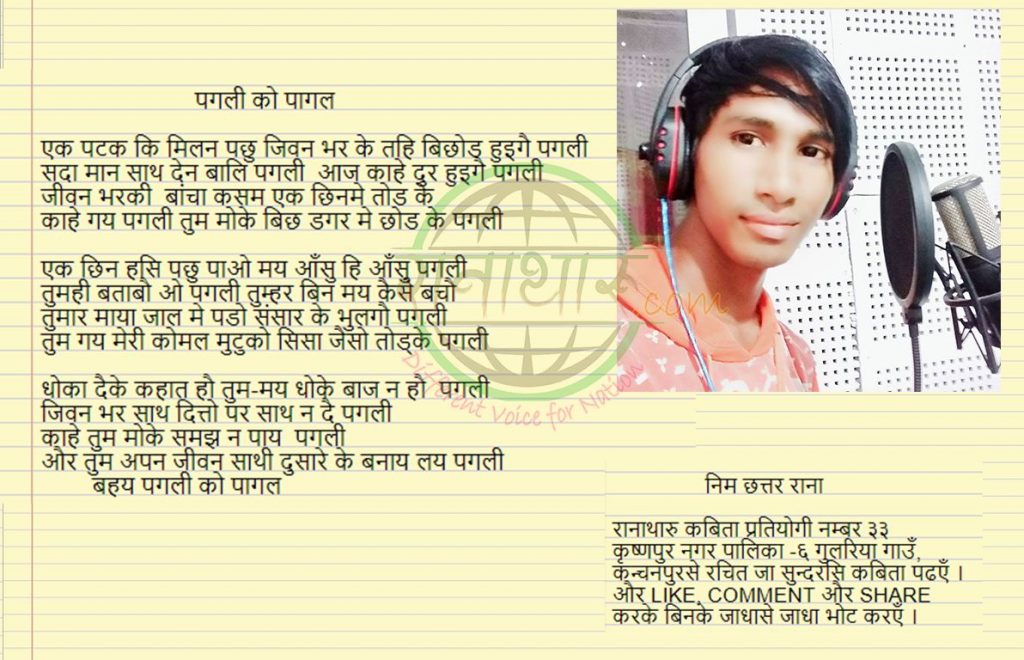 पगली को पागल
एक पटक कि मिलन पछु जिवन भर के तहि बिछोड हुइगै पगली
सदा मान साथ देन बालि पगली आज काहे दुर हुइगै पगली
जीवन भरकी बांचा कसम एक छिनमे तोड के
काहे गय पगली तुम मोके बिछ डगर मे छोड के पगली
एक छिन हसि पछु पाओ मय आँसु हि आँसु पगली
तुमही बताबौ ओ पगली तुम्हर बिन मय कैसे बचो
तुमार माया जाल मे पडो संसार के भुलगौ पगली
तुम गय मेरी कोमल मुटुको सिसा जैसो तोड्के पगली
धोका दैके कहात हौ तुम-मय धोके बाज न हौ पगली
जिवन भर साथ दित्तो पर साथ न दै पगली
काहे तुम मोके समझ न पाय पगली
और तुम अपन जीवन साथी दुसारे के बनाय लय पगली
बहय पगली को पागल
रानाथारु
.com
Different Voice for Nation
निम छत्तर राना
रानाथारु कबिता प्रतियोगी नम्बर ३३
कृष्णपुर नगर पालिका -६ गुलरिया गाउँ,
कन्चनपुरसे रचित जा सुन्दरसि कबिता पढएँ ।
और LIKE, COMMENT और SHARE
करके बिनके जाधासे जाधा भोट करएँ ।